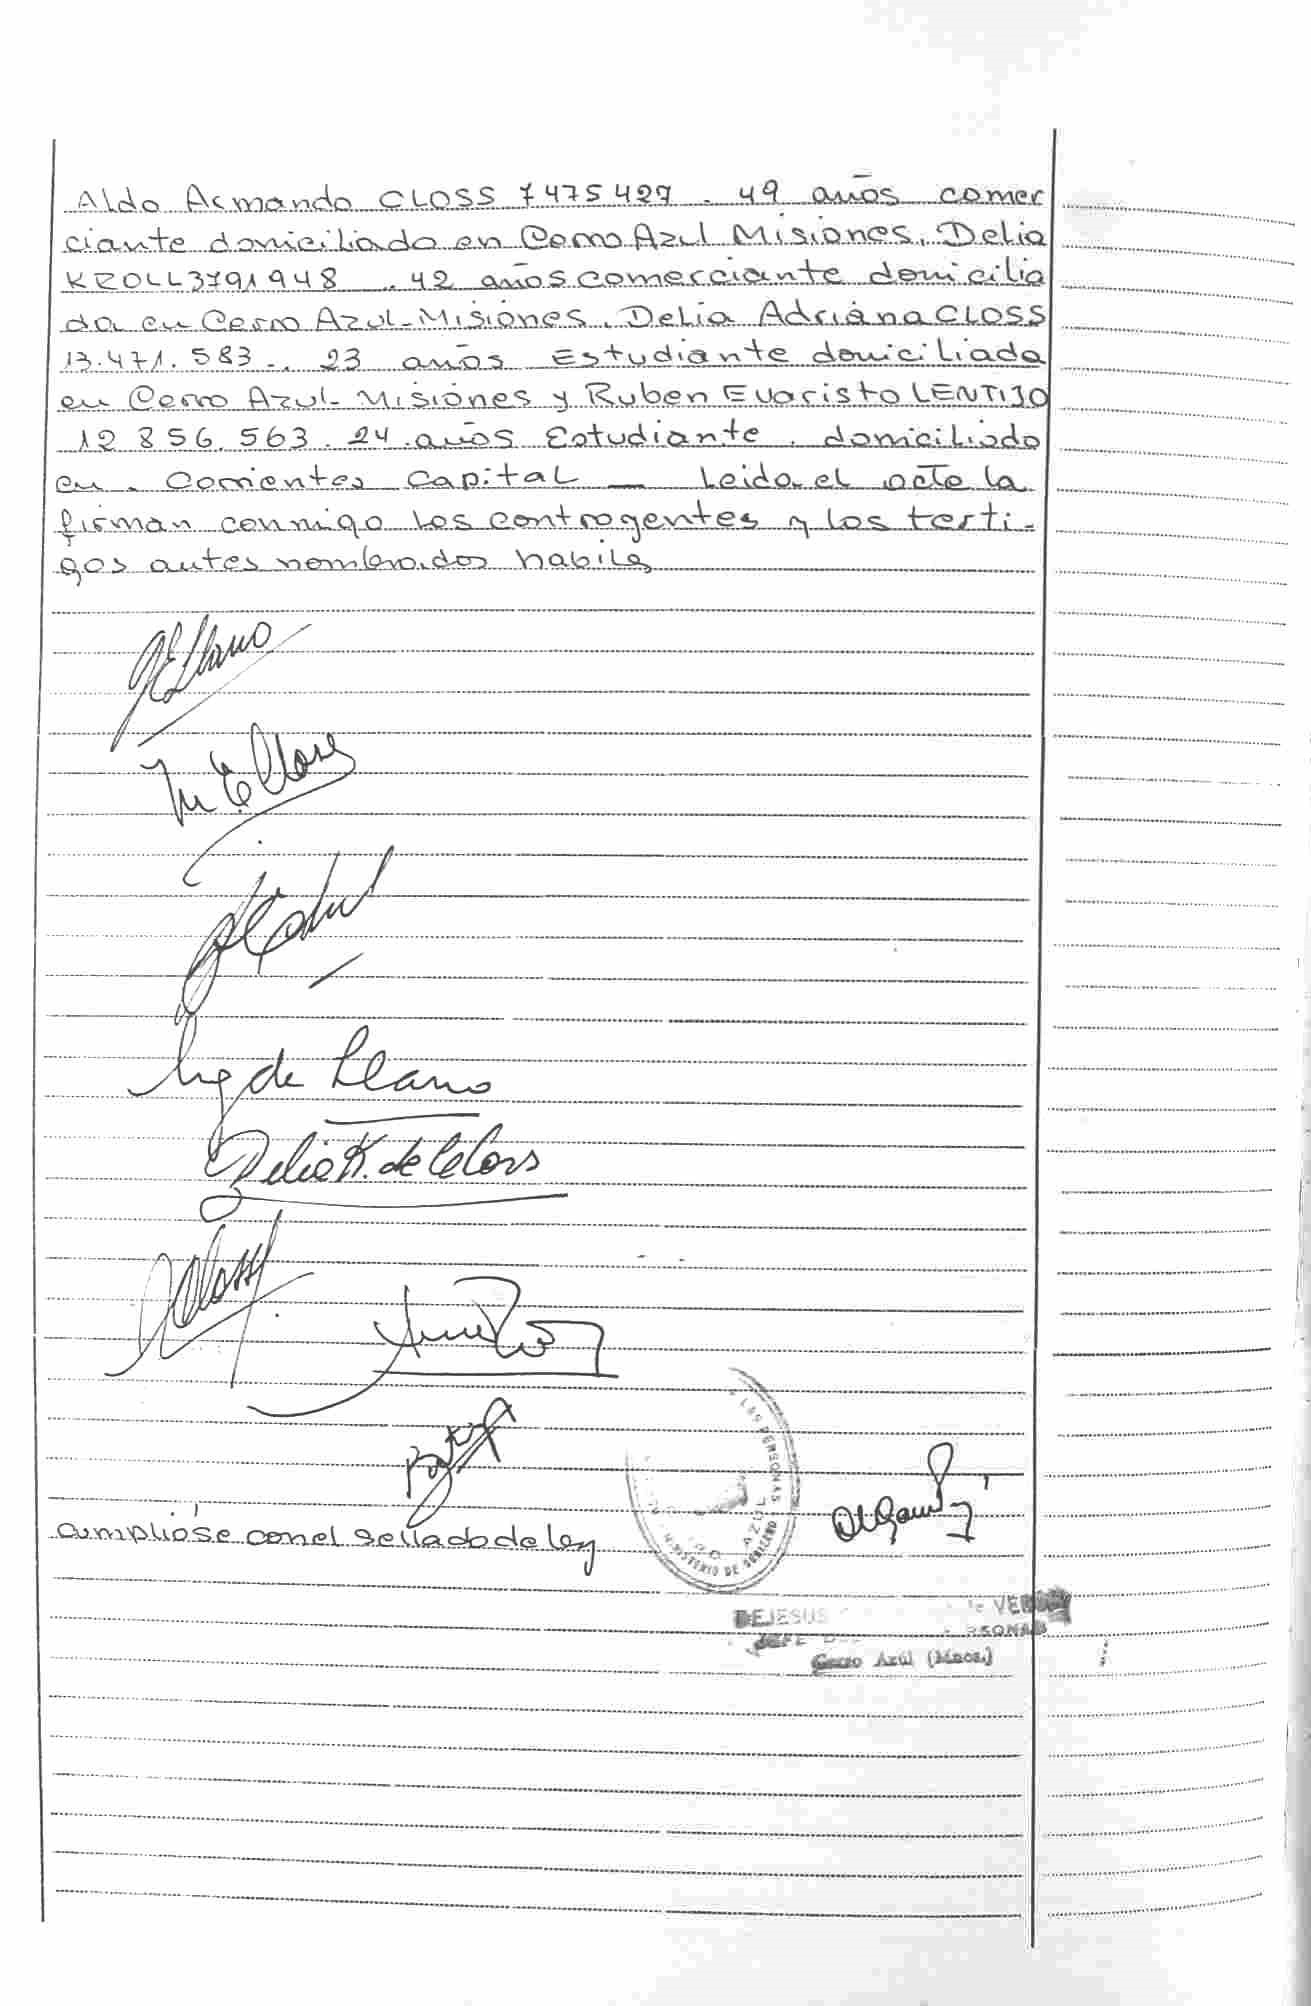 Aldo Armando CLOSS 7475427. 49 años comer
ciante domiciliado en Cerro Azul Misiones. Delia
KROLL 3791948 . 42 años comerciante domicilia
da en Cerro Azul-Misiones. Delia Adriana CLOSS
13.471.583-. 23 años Estudiante domiciliada
en Cerro Azul-Misiones y Ruben Evaristo LENTIJO
12 856.563. 24. años Estudiante. domiciliado
en. Corrientes Capital — Leida el acta la
firman conmigo los contrayentes y los testi-
gos antes nombrados habiles
Llano
M E Closs
de Llano
Delia K. de Closs
Closs
LAS PERSONAS
AZUL
MINISTERIO DE GOBIERNO
cumplióse con el sellado de ley
DEJESUS VER
JEFE DE RSONAS
Cerro Azul (Mnes.)